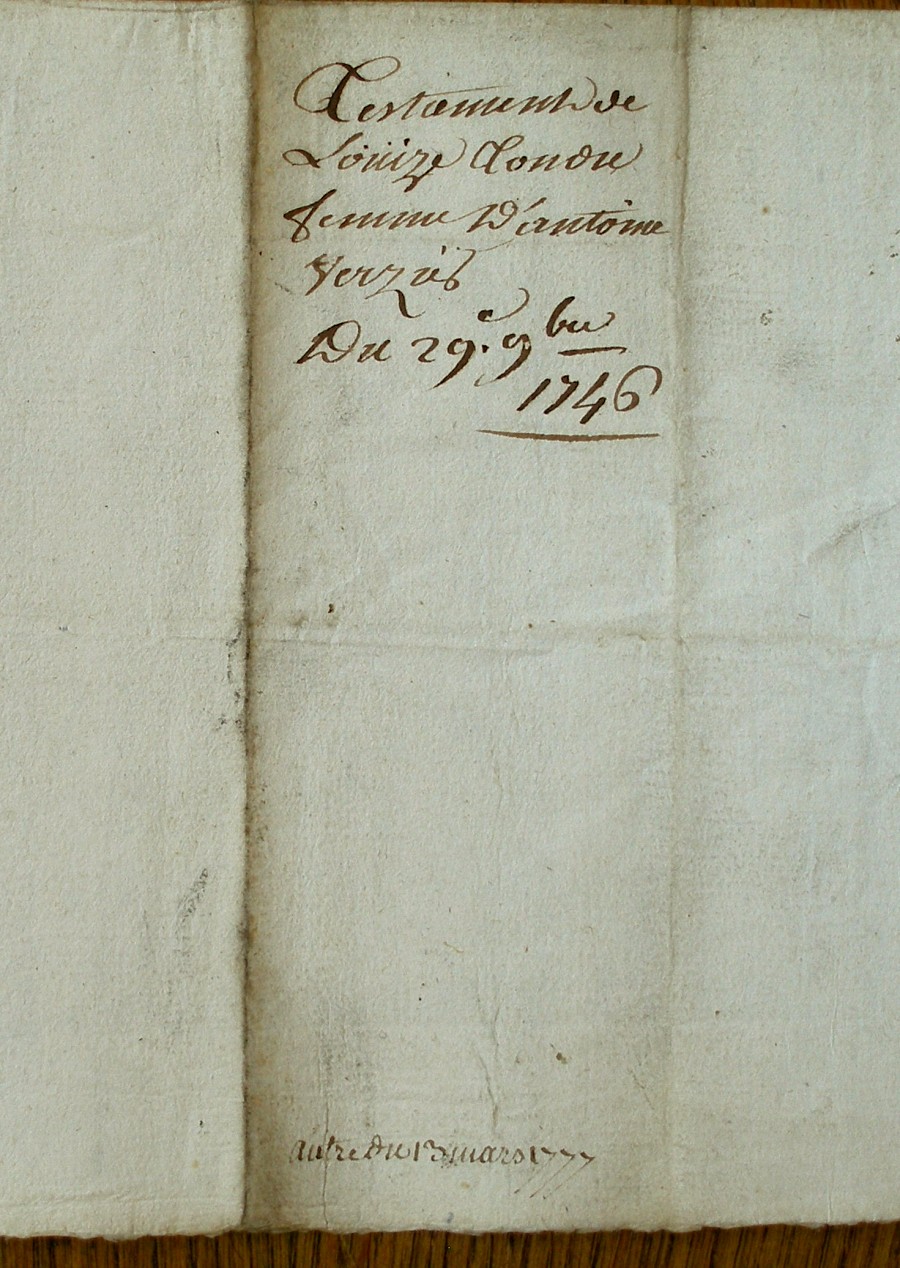 Testament de
Loüize Condre
femme D'antoine
Verziés
Du 29.e 9bre
1746
autre du 13 mars 1777